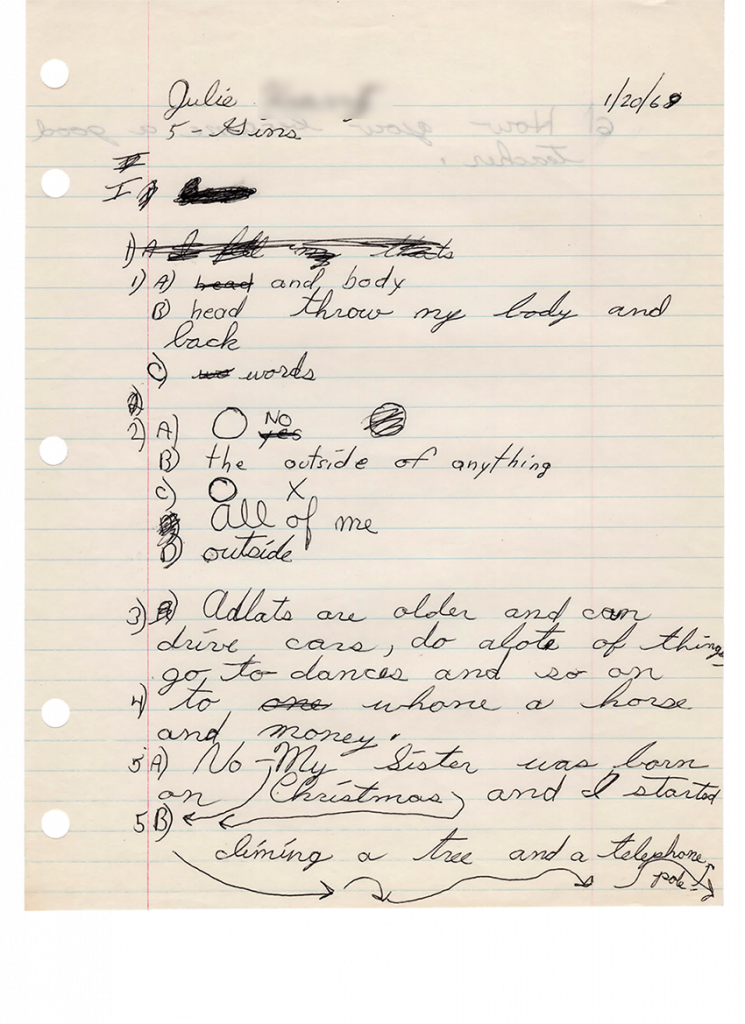 Julie 1/20/68
5 - Gins
I
I
1) A
1) A) head and body
B) head throw my body and
back
C) wo words
2)
2) A) No yes
B) the outside of anything
C) X
all of me
D) outside
3) Adlats are older and can
drive cars, do alote of things
go to dances and so on
4) to one whone a horse
and money.
5 A) No - My Sister was born
on Christmas and I started
5 B)
climing a tree and a telephone
pole